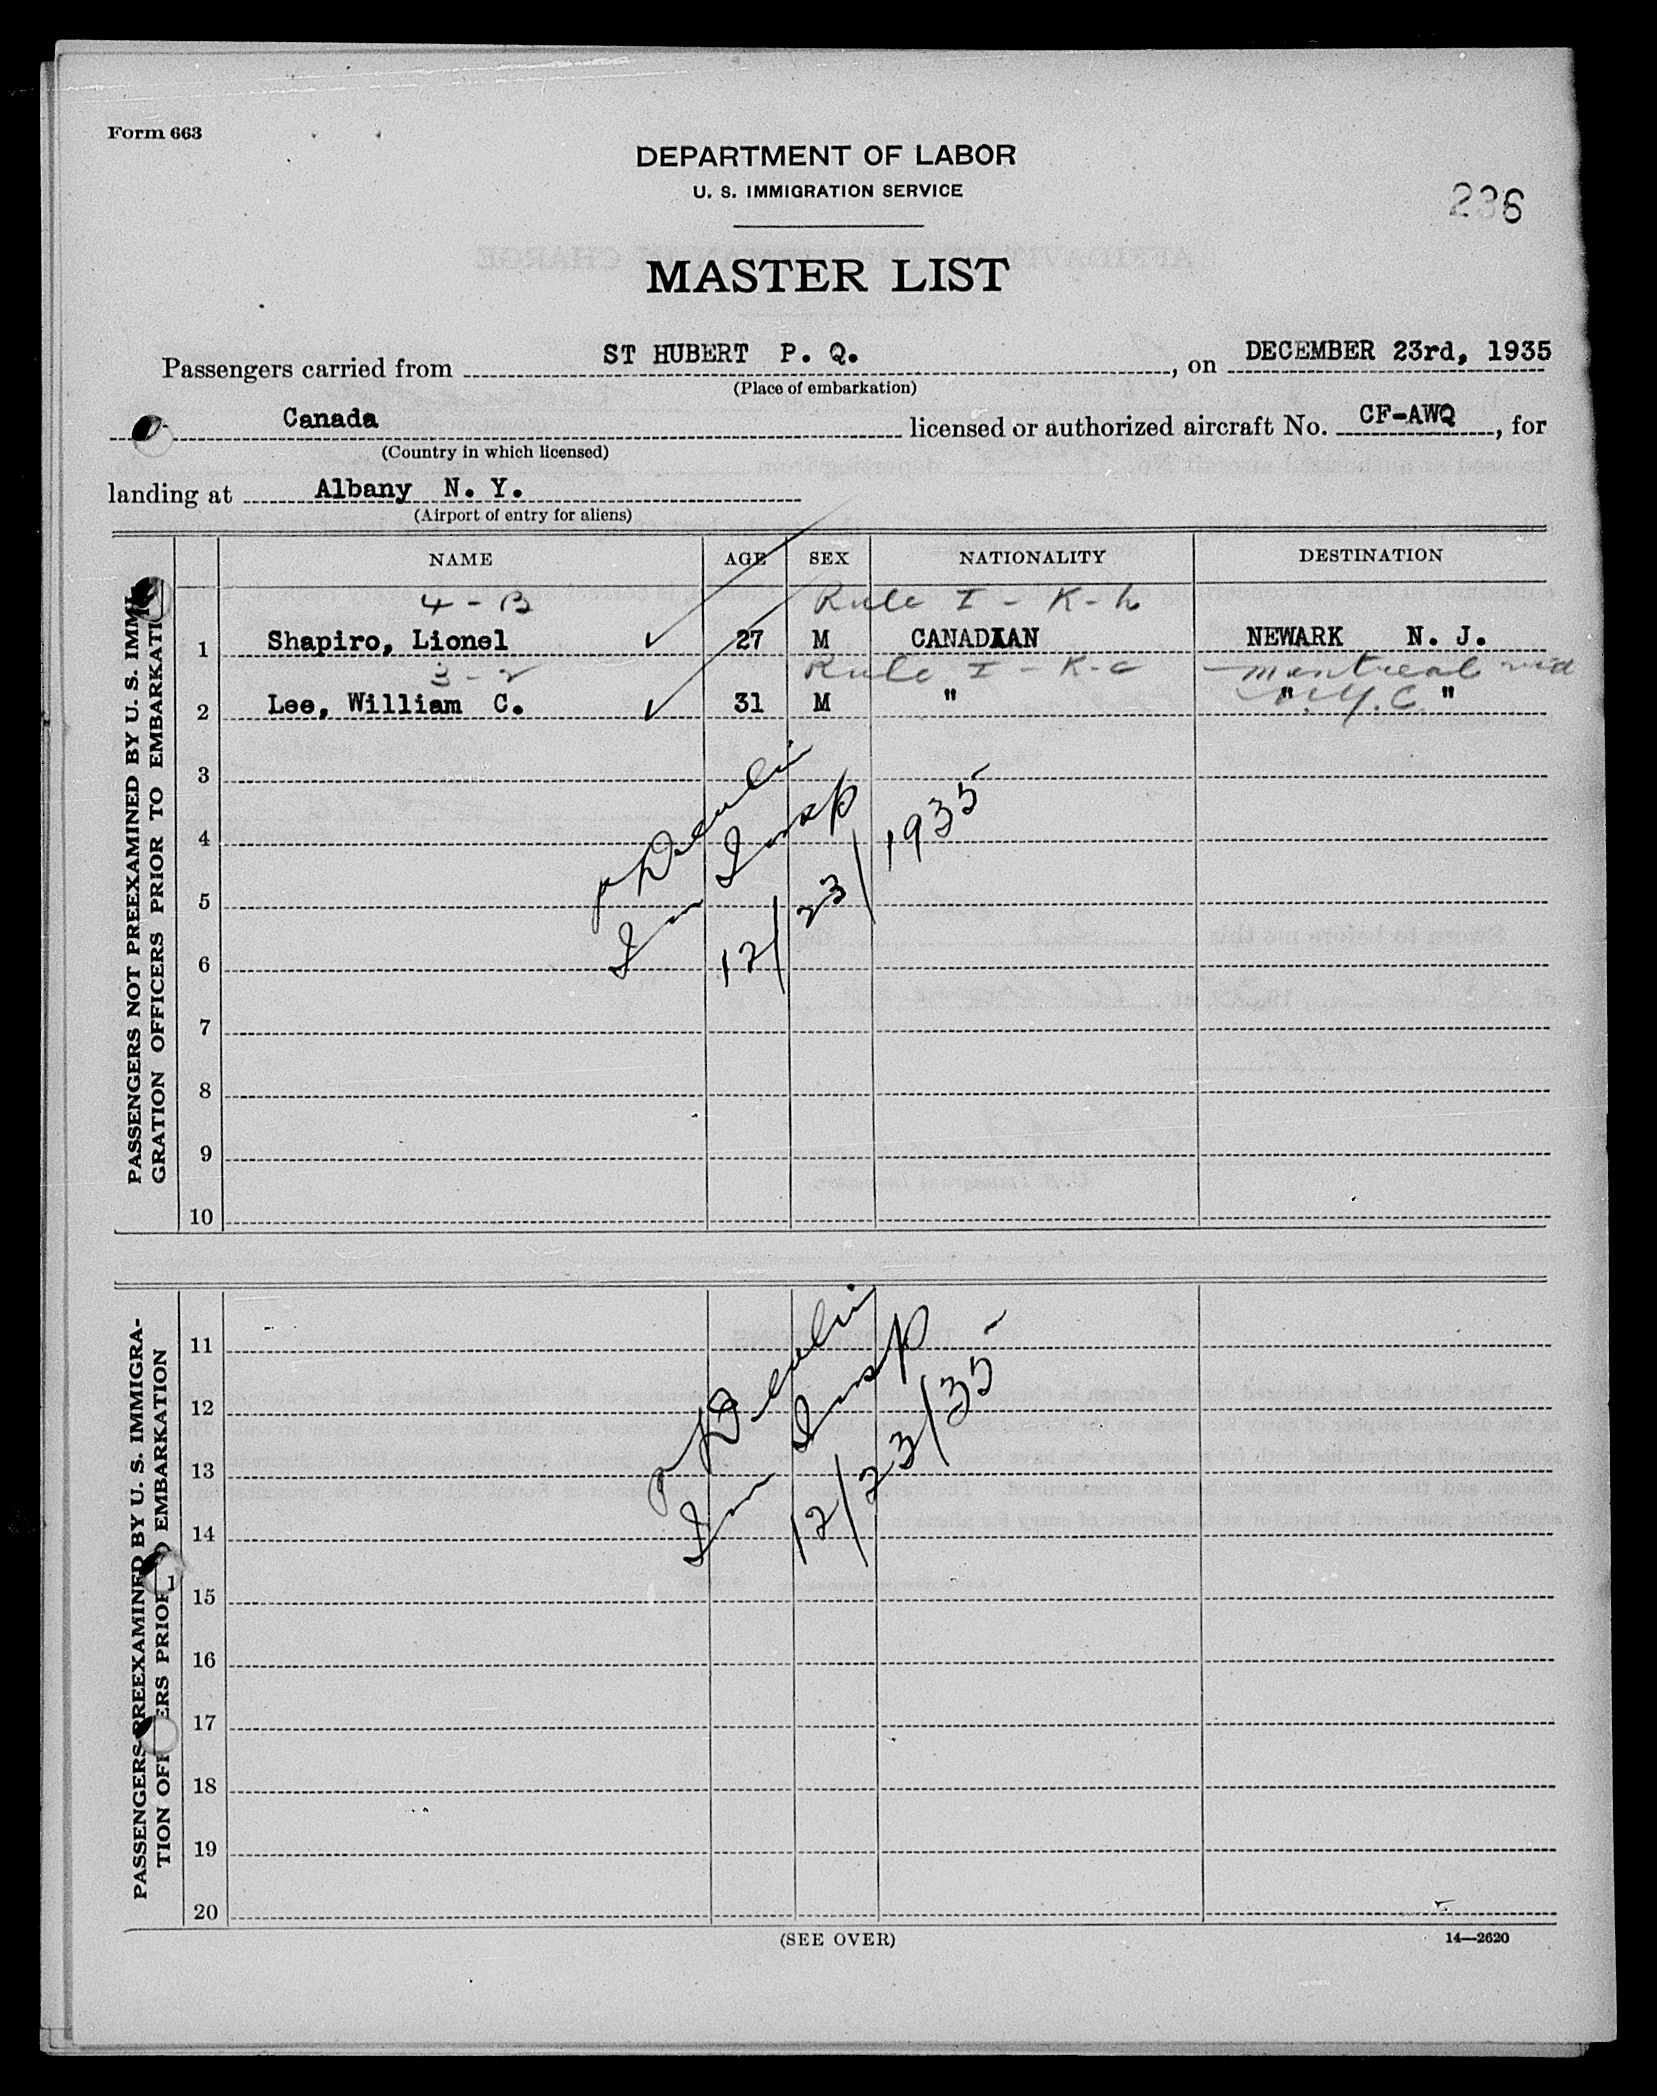 Form 663
DEPARTMENT OF LABOR
U. S. IMMIGRATION SERVICE
236
MASTER LIST
Passengers carried from ST HUBERT P. Q., on DECEMBER 23rd, 1935
(Place of embarkation)
Canada licensed or authorized aircraft No. CF-AWQ, for
(Country in which licensed)
landing at Albany N. Y.
(Airport of entry for aliens)
NAME AGE SEX NATIONALITY DESTINATION
PASSENGERS NOT PREEXAMINED BY U. S. IMMI-
GRATION OFFICERS PRIOR TO EMBARKATI
4 - B Rule I - K-h
1 Shapiro, Lionel ✓ 27 M CANADIAN NEWARK N. J.
3 - 2 Rule I - K-c Montreal via
2 Lee, William C. ✓ 31 M " " N.Y.C. "
3
4
5
6
7
8
9
10
Devlin
Im Insp
12/23/1935
PASSENGERS PREEXAMINED BY U. S. IMMIGRA-
TION OFFICERS PRIOR TO EMBARKATION
11
12
13
14
15
16
17
18
19
20
Devlin
Im Insp
12/23/35
(SEE OVER)
14—2620